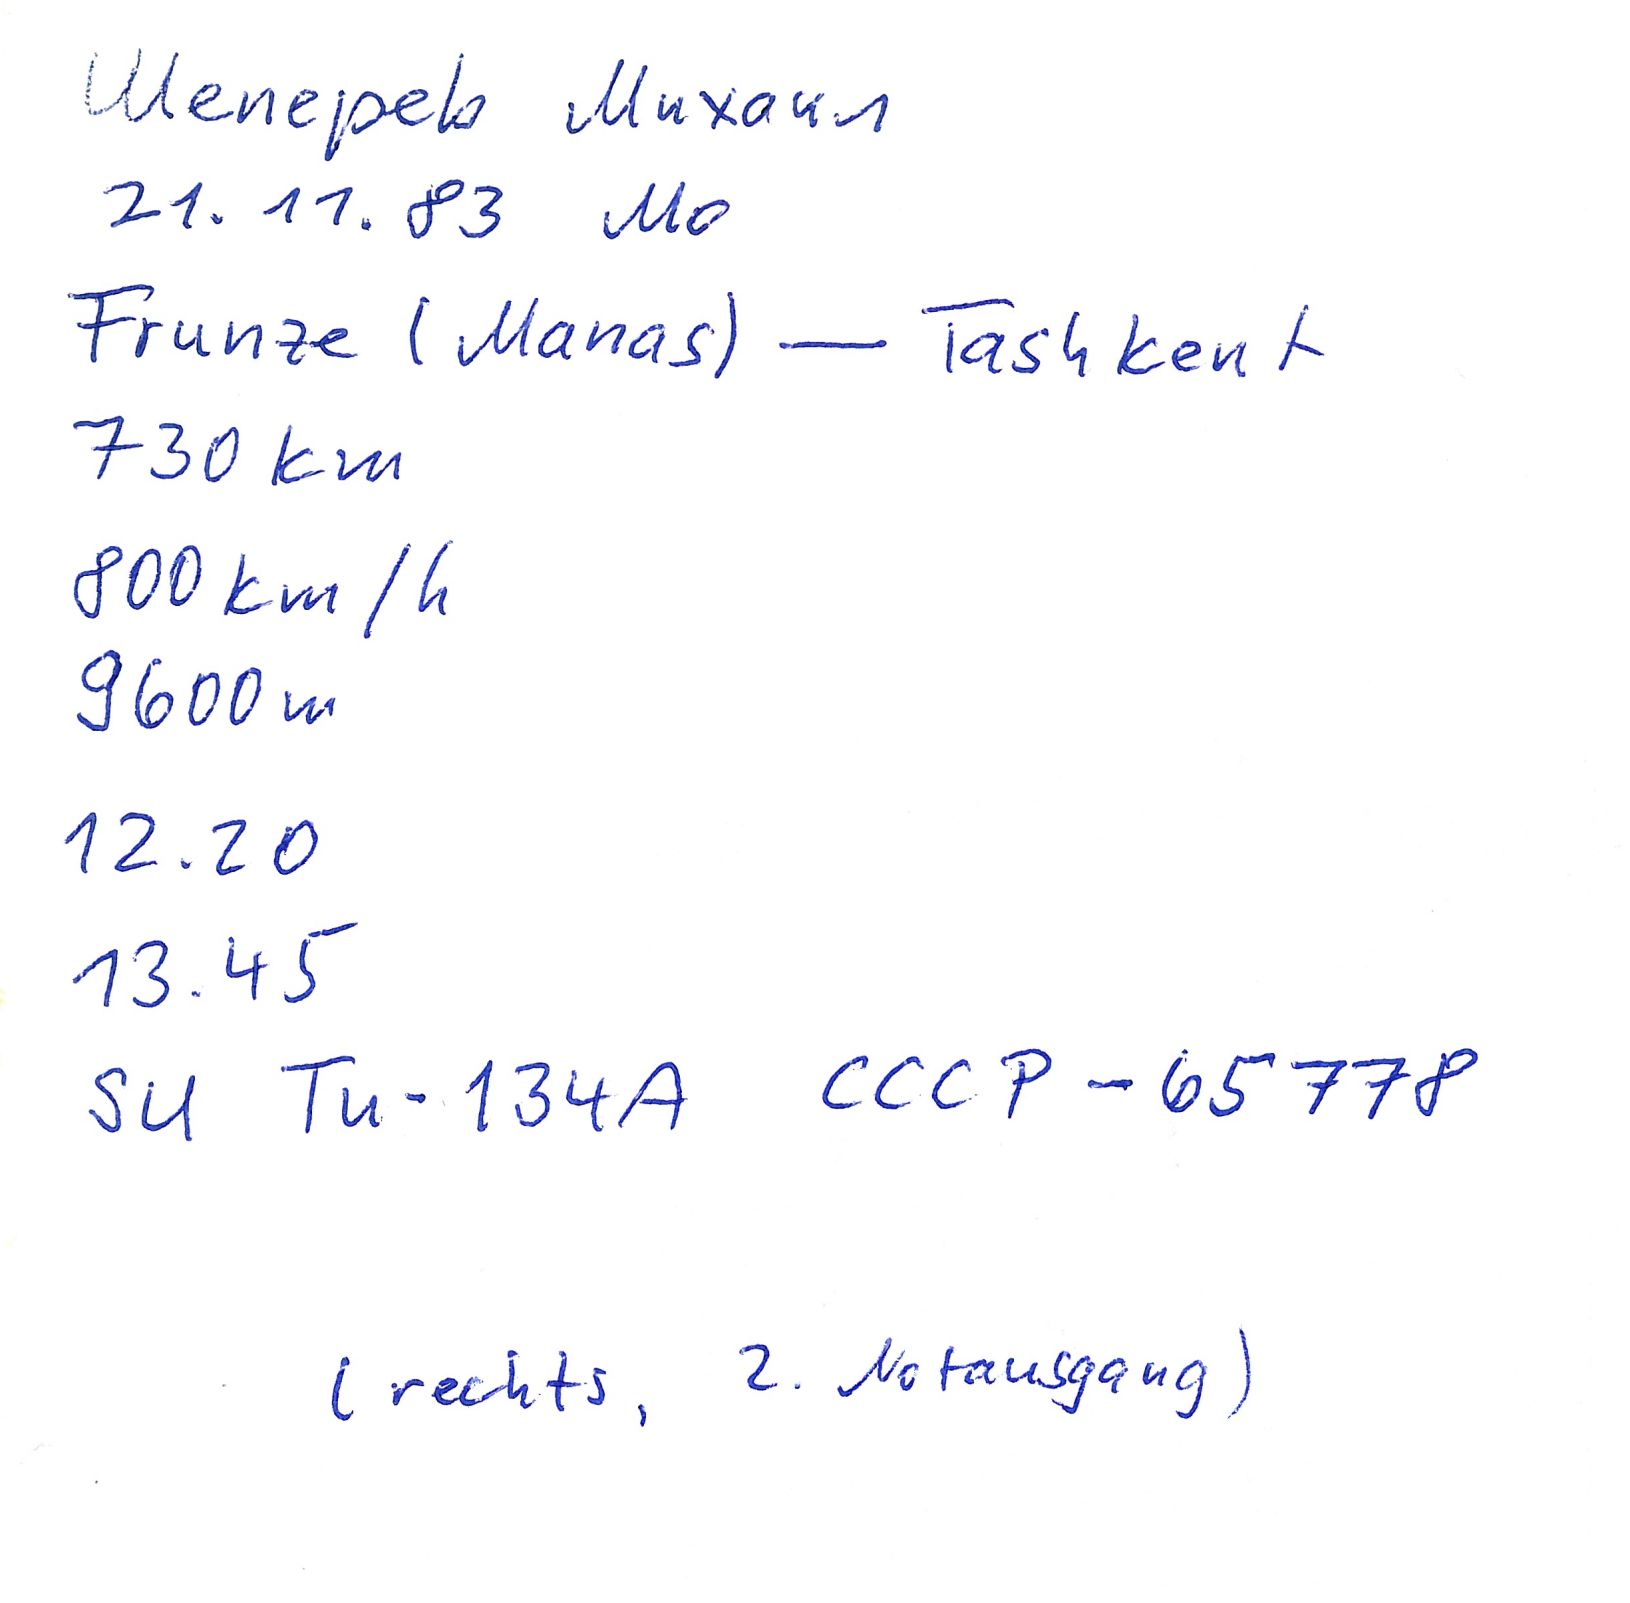 Шеперев Михаил
21.11.83 Mo
Frunze (Manas) — Tashkent
730 km
800 km/h
9600 m
12.20
13.45
SU Tu-134A CCCP-65778
(rechts, 2. Notausgang)